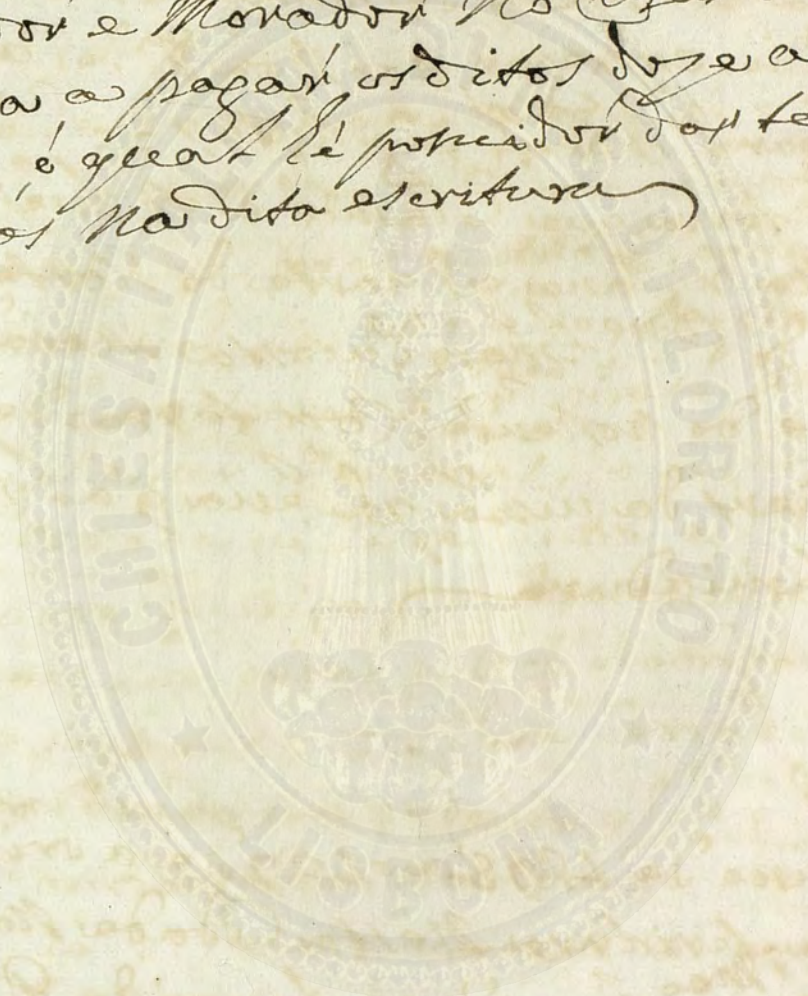 dor e Morador No
a a pagar os ditos doze a
o qual hé posuidor das te
es Na dita escritura
CHIESA DI LORETO
LISBONA